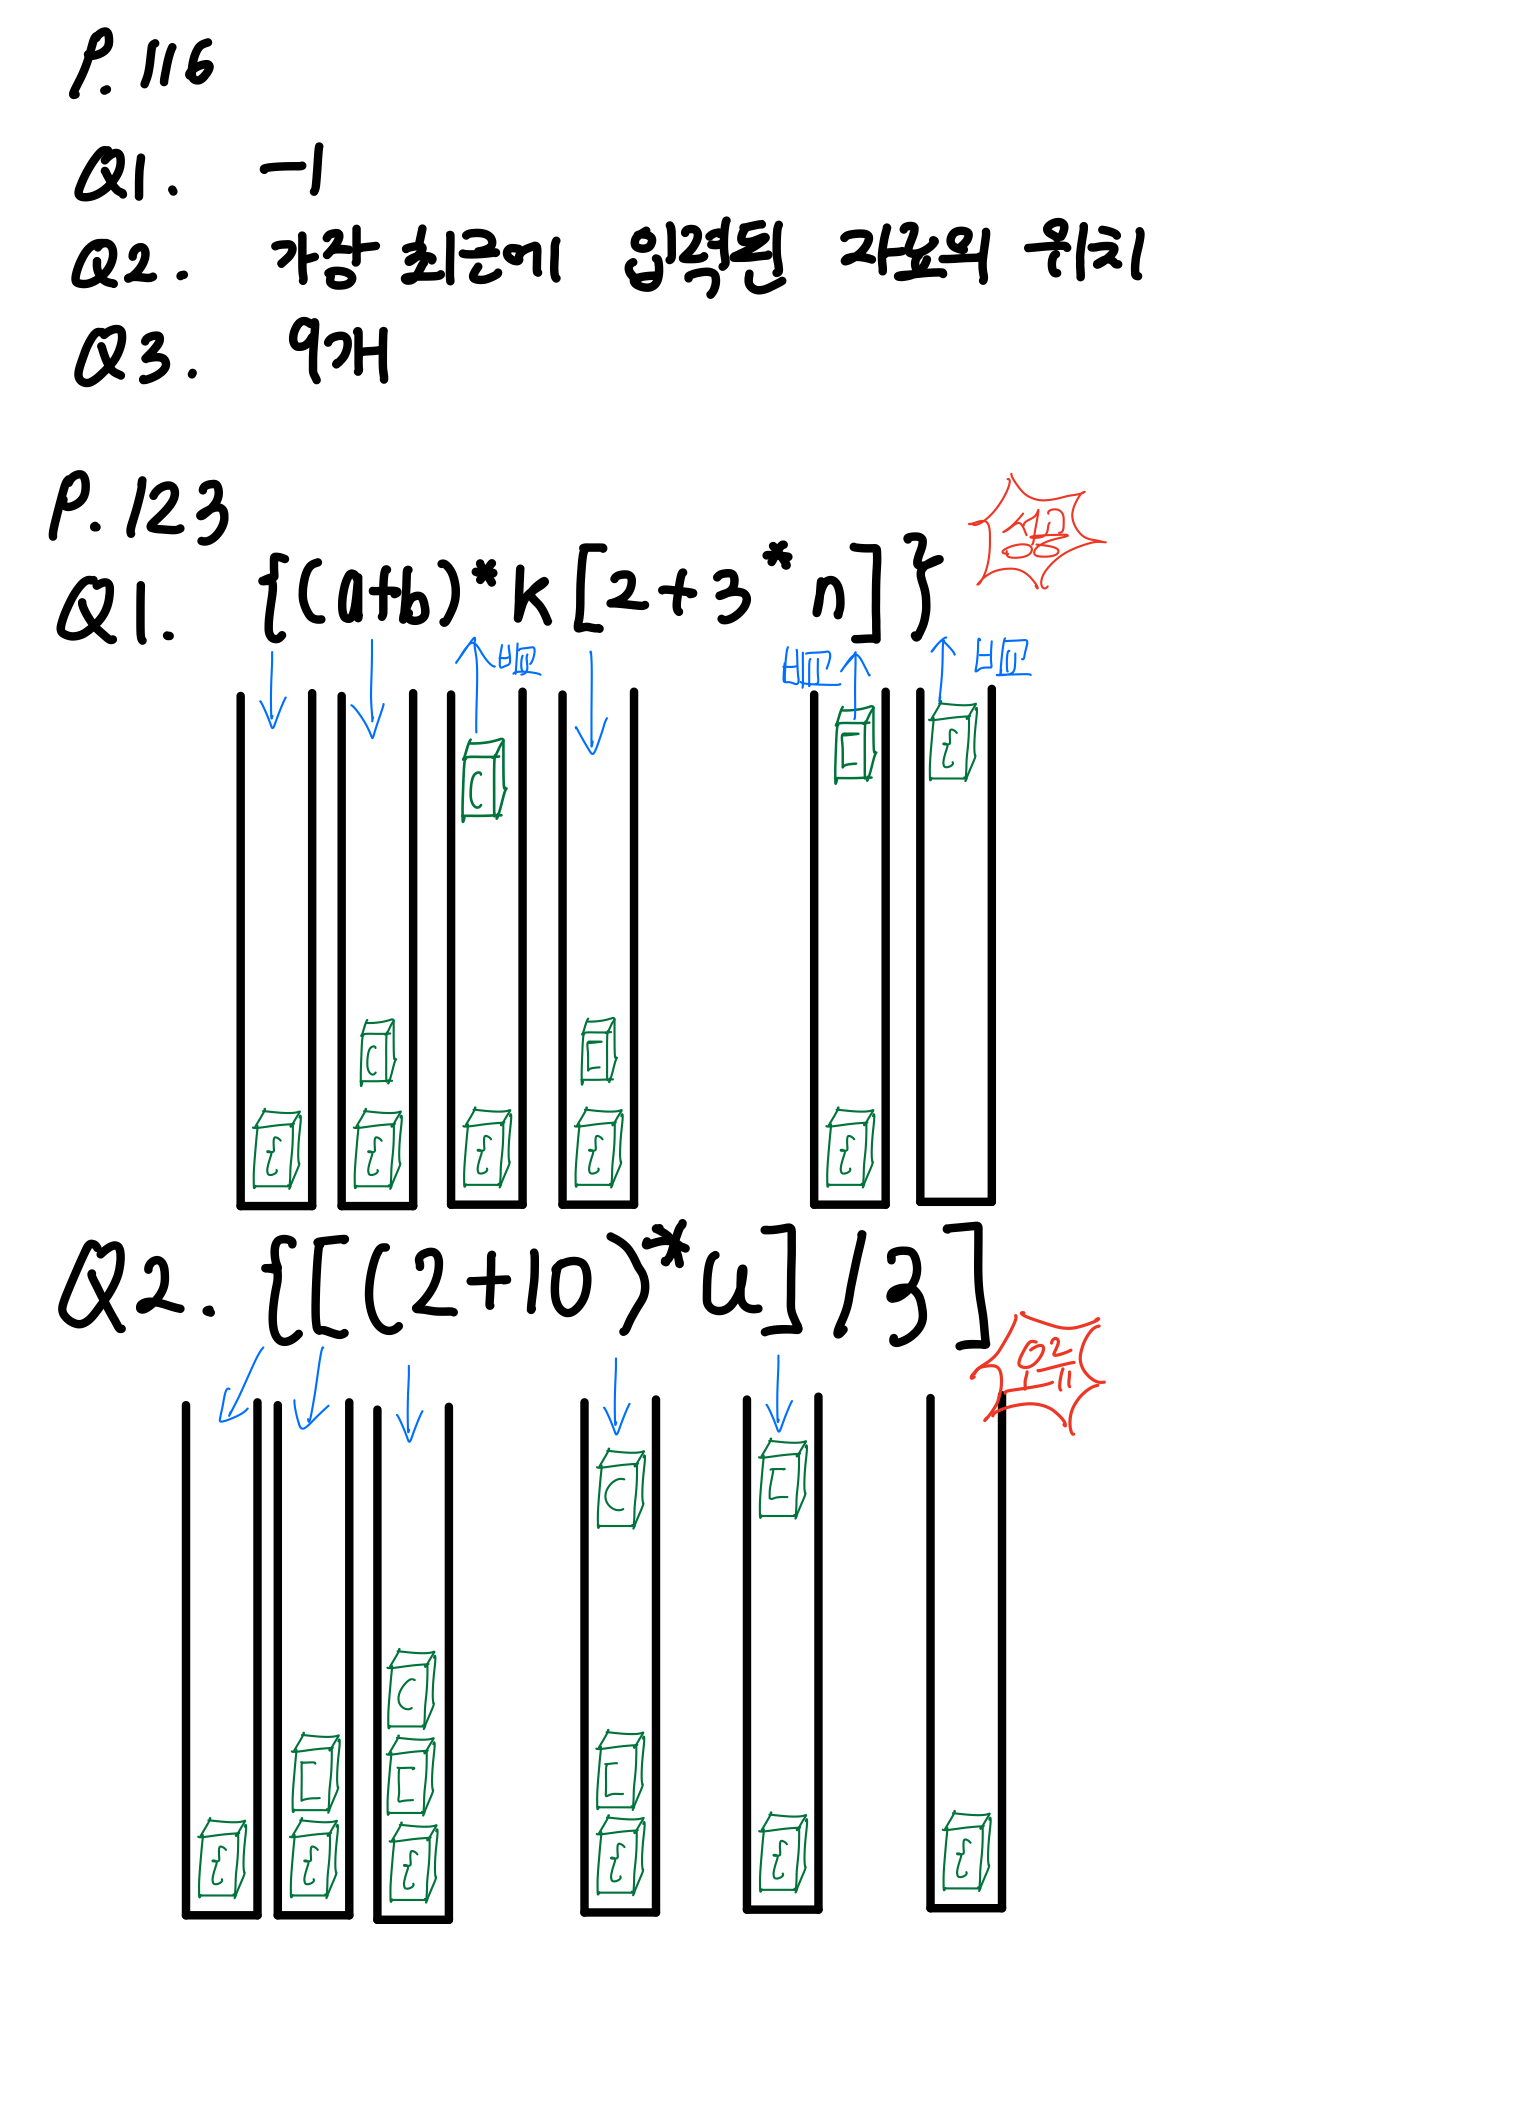 P. 116
Q1. -1
Q2. 가장 최근에 입력된 자료의 위치
Q3. 9개
P. 123
성공
Q1. {(a+b)*k[2+3*n]}
비교 비교 비교
{ [
( {
( [
{ { { { {
Q2. {[(2+10)*u]/3]
오류
( [
(
[ [ [
{ { { { { {